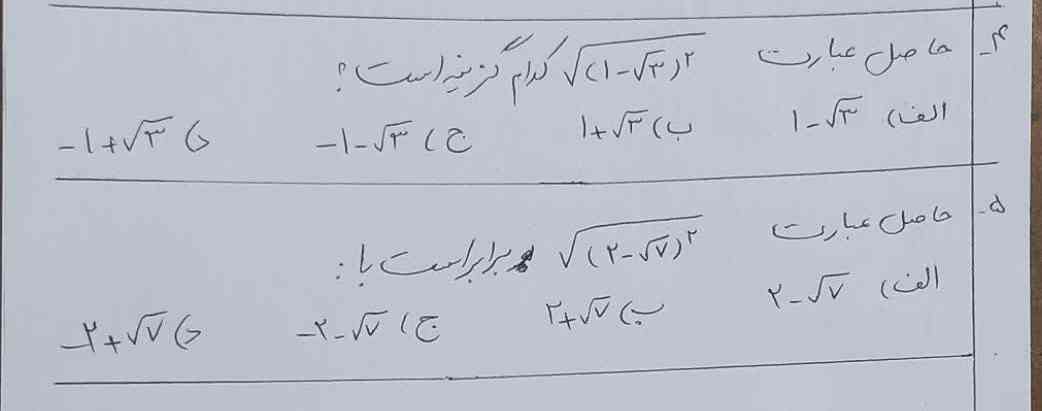 ۴- حاصل عبارت √(۱-√۳)۲ کدام گزینه است؟
الف) ۱-√۳ ب) ۱+√۳ ج) -۱-√۳ د) -۱+√۳
۵- حاصل عبارت √(۲-√۷)۲ برابر است با:
الف) ۲-√۷ ب) ۲+√۷ ج) -۲-√۷ د) -۲+√۷